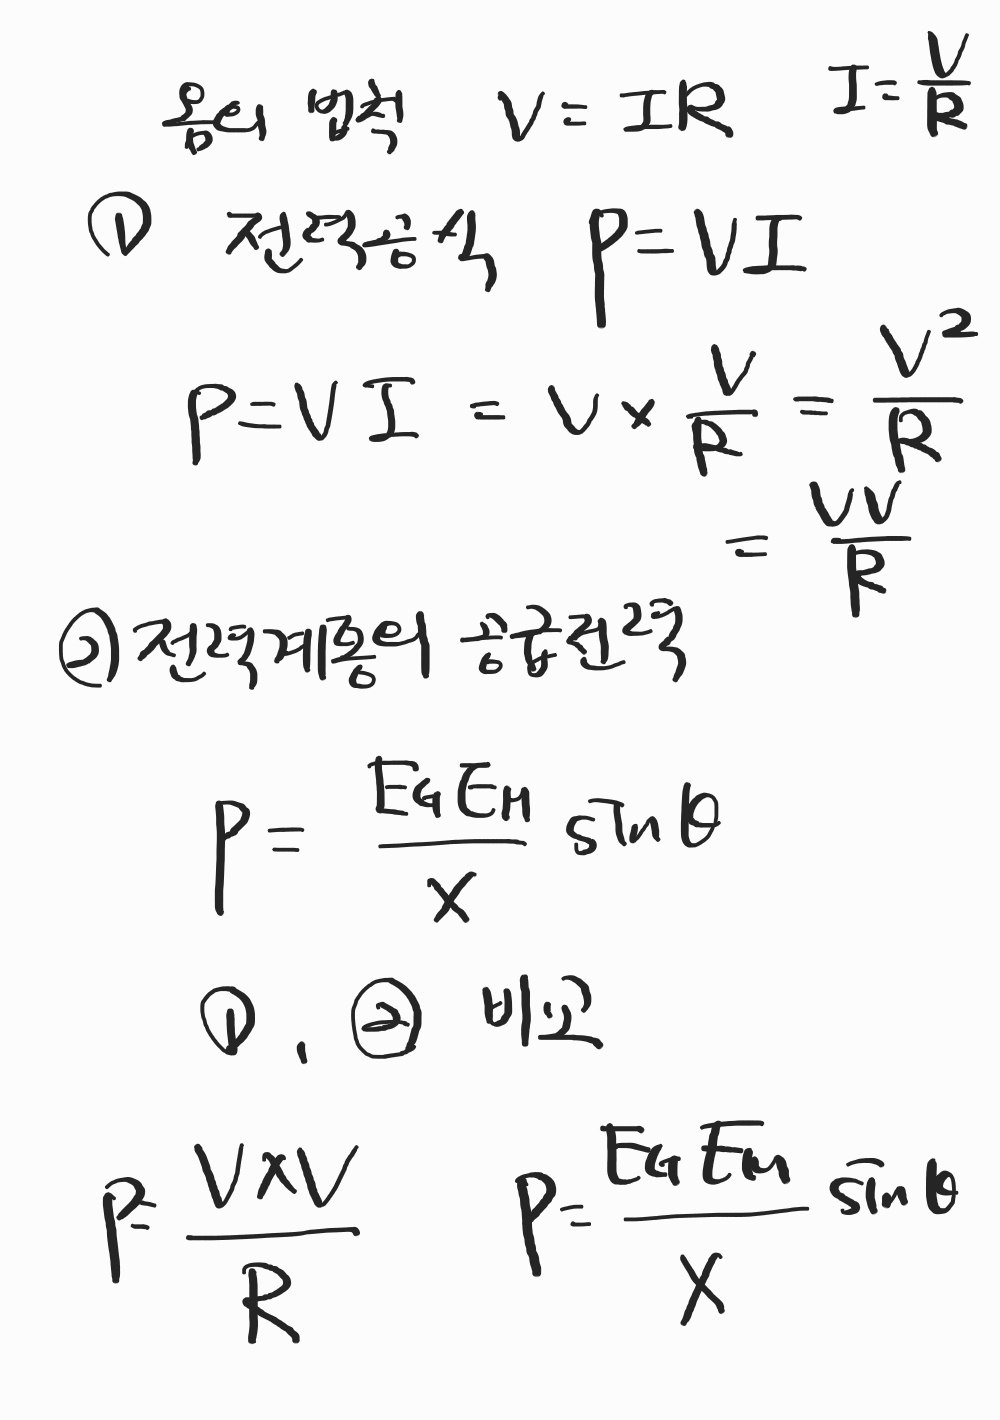 옴의 법칙 V = IR I = V/R
① 전력공식 P = VI
P = VI = V × V/R = V²/R
= VV/R
② 전력계통의 공급전력
P = E_G E_M / X sin θ
①, ② 비교
P = V×V / R P = E_G E_M / X sin θ